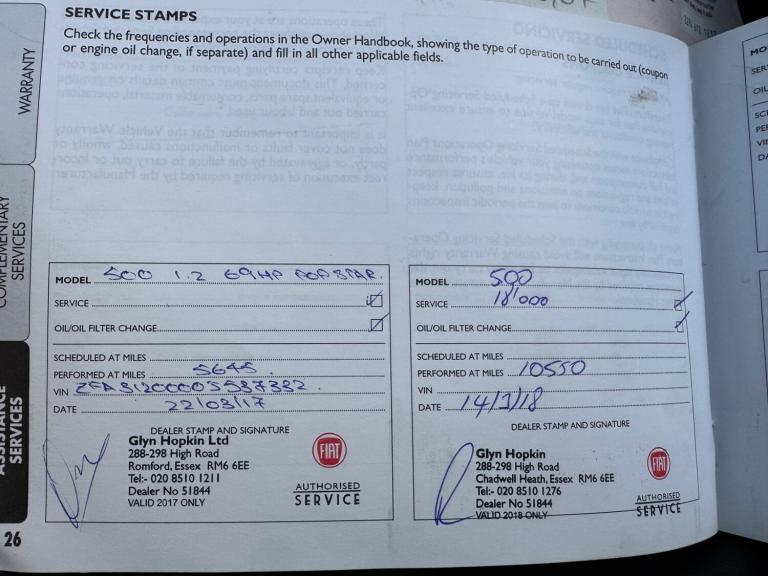 SERVICE STAMPS
Check the frequencies and operations in the Owner Handbook, showing the type of operation to be carried out (coupon
or engine oil change, if separate) and fill in all other applicable fields.
WARRANTY
COMPLEMENTARY
SERVICES
ASSISTANCE
SERVICES
26
MODEL 500 1.2 69HP POPSTAR.
SERVICE
OIL/OIL FILTER CHANGE
SCHEDULED AT MILES
PERFORMED AT MILES 5645.
VIN
DATE 22/03/17
DEALER STAMP AND SIGNATURE
Glyn Hopkin Ltd
288-298 High Road
Romford, Essex RM6 6EE
Tel:- 020 8510 1211
Dealer No 51844
VALID 2017 ONLY
FIAT
AUTHORISED
SERVICE
MODEL 500
SERVICE 18'000
OIL/OIL FILTER CHANGE
SCHEDULED AT MILES
PERFORMED AT MILES 10550
VIN
DATE 14/3/18
DEALER STAMP AND SIGNATURE
Glyn Hopkin
288-298 High Road
Chadwell Heath, Essex RM6 6EE
Tel:- 020 8510 1276
Dealer No 51844
VALID 2018 ONLY
FIAT
AUTHORISED
SERVICE